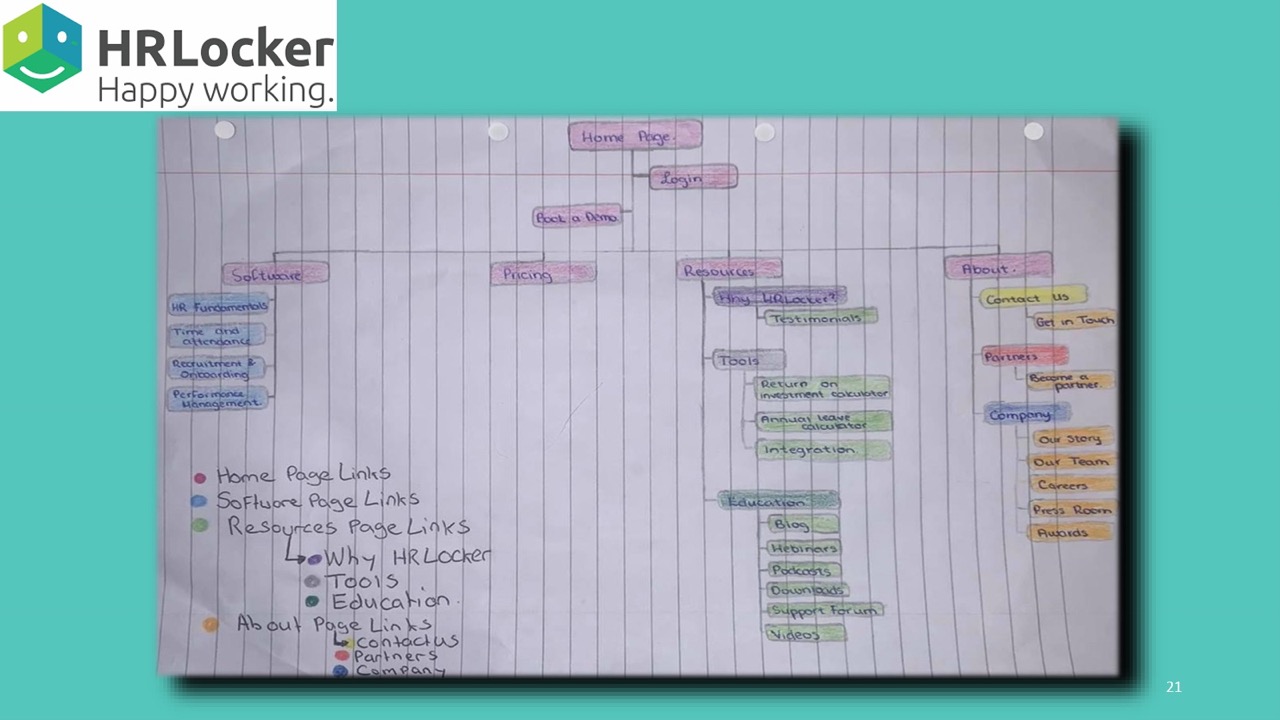 HRLocker
Happy working.
Home Page.
Login
Book a Demo
Software
Pricing
Resources
About.
HR Fundamentals
Time and
attendance
Recruitment &
Onboarding
Performance
Management.
Why HRLocker?
Testimonials
Tools
Return on
investment calculator
Annual leave
calculator
Integration
Education
Blog
Webinars
Podcasts
Downloads
Support Forum
Videos
Contact Us
Get in Touch
Partners
Become a
partner.
Company
Our Story
Our Team
Careers
Press Room
Awards
Home Page Links
Software Page Links
Resources Page Links
Why HRLocker
Tools
Education.
About Page Links
Contact us
Partners
Company
21